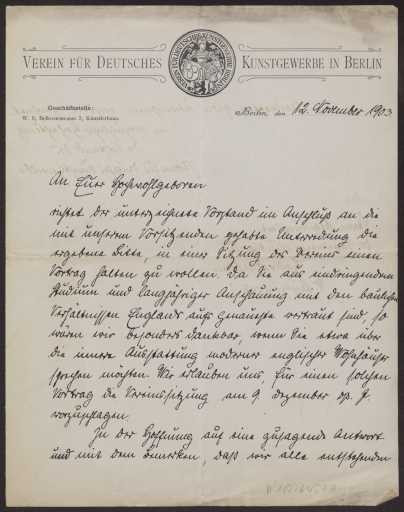 VEREIN FÜR DEUTSCHES KUNSTGEWERBE IN BERLIN
Geschäftsstelle:
W. 9, Bellevuestrasse 3, Künstlerhaus.
Berlin, den 12. November 1903
An Euer Hochwohlgeboren
richtet der unterzeichnete Vorstand im Anschluß an die
mit unserem Vorsitzenden gehabte Unterredung die
ergebene Bitte, in einer Sitzung des Vereins einen
Vortrag halten zu wollen. Da Sie aus eindringendem
Studium und langjähriger Anschauung mit den baulichen
Verhältnissen Englands aufs Genaueste vertraut sind, so
wären wir besonders dankbar, wenn Sie etwa über
die innere Ausstattung moderner englischer Wohnhäuser
sprechen möchten. Wir erlauben uns, für einen solchen
Vortrag die Vereinssitzung am 9. Dezember ds. J.
vorzuschlagen.
In der Hoffnung auf eine zusagende Antwort
und mit dem Bemerken, daß wir alle entstehenden